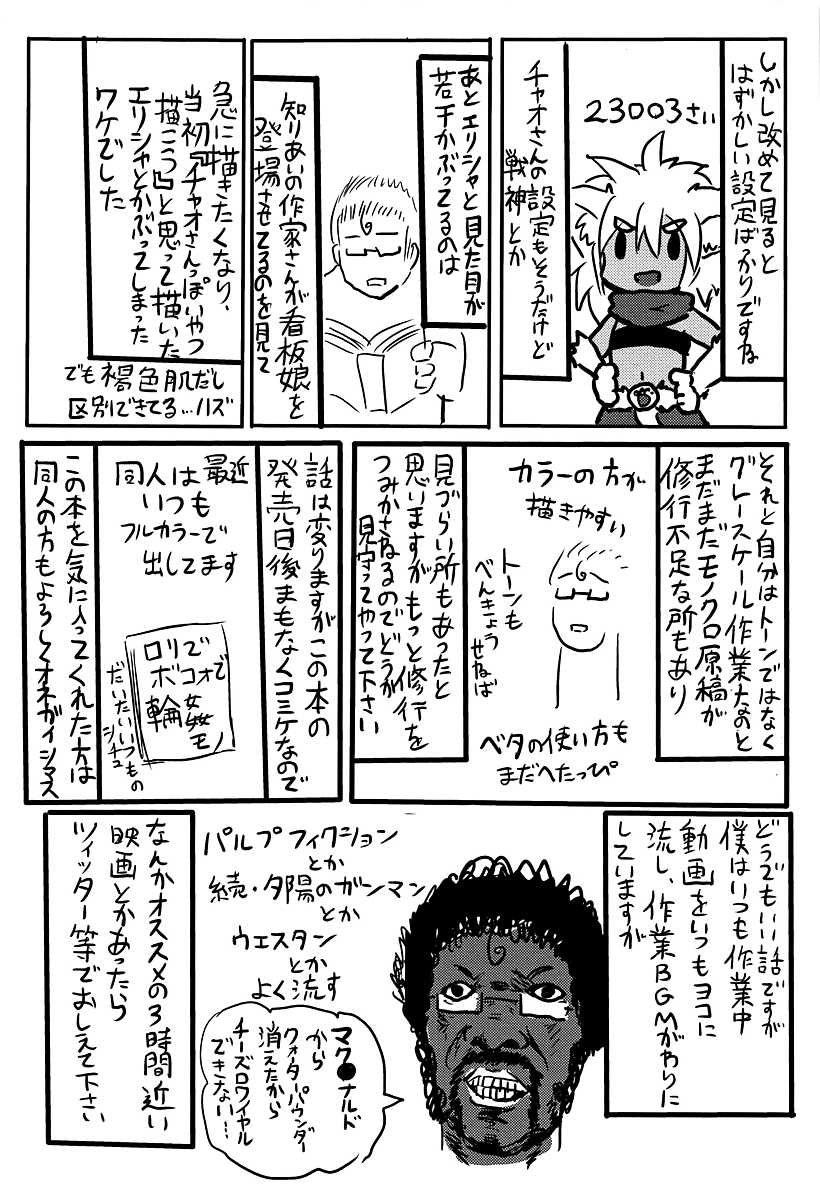 しかし改めて見ると
はずかしい設定ばっかりですね
23003さい
チャオさんの設定もそうだけど
戦神とか
あとエリシャと見た目が
若干かぶってるのは
知りあいの作家さんが看板娘を
登場させてるのを見て
急に描きたくなり、
当初『チャオさんっぽいやつ
描こっ凸と思って描いた
エリシャとかぶってしまった
ワケでした
でも褐色肌だし
区別できてる…ハズ
それと自分はトーンではなく
グレースケール作業なおと
まだまだモノクロ原稿が
修行不足な所もあり
カラーの方が
描きやすい
トーンも
べんきょう
せねば
ベタの使い方も
まだへたっぴ
見づらい所もあったと
思いますがもっと修行を
つみかさねるのでどうか
見守ってやって下さい
話は変りますがこの本の
発売日後まもなくコミケなので
最近
同人は
いつも
フルカラーで
出してます
ロリで
ボコォで
輪姦モノ
だいたいいつもの
シチュ
この本を気に入ってくれた方は
同人の方もよろしくオネガイシマス
どうでもいい話ですが
僕はいつも作業中
動画をいつもヨコに
流し、作業BGMがわりに
していますが
パルプフィクション
とか
続・夕陽のガンマン
とか
ウエスタン
とか
よく流す
マク●ナルド
から
クォーターパウンダー
消えたから
チーズロワイヤル
できない…
なんかオススメの3時間近い
映画とかあったら
ツィッター等でおしえて下さい